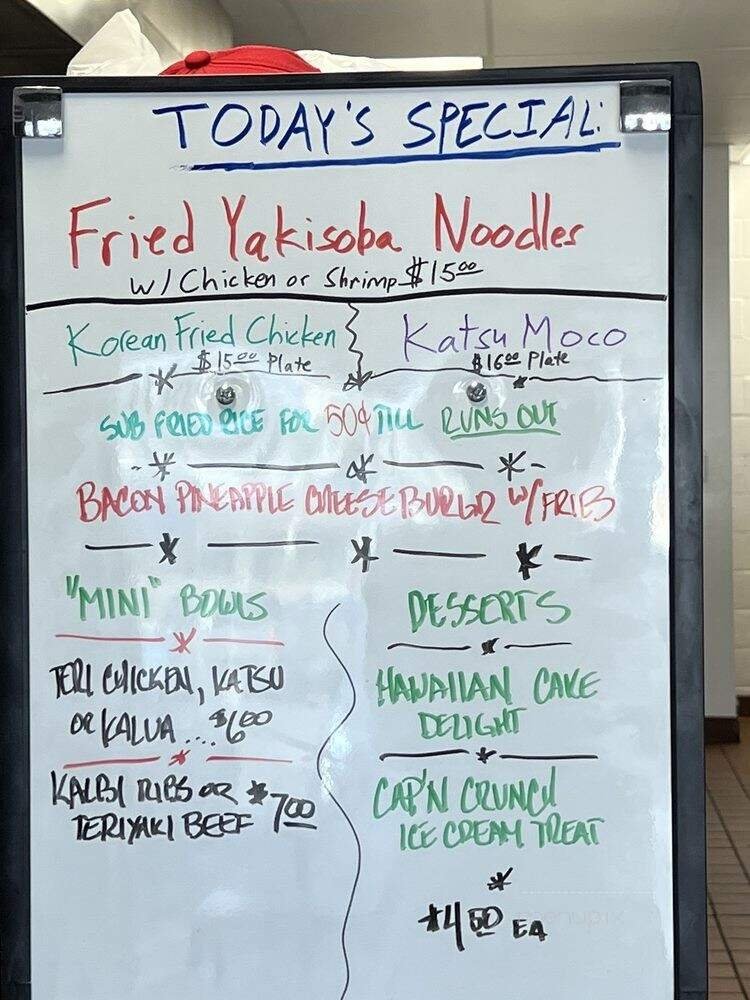 TODAY'S SPECIAL:
Fried Yakisoba Noodles
w/ Chicken or Shrimp $15.00
Korean Fried Chicken
$15.00 Plate
Katsu Moco
$16.00 Plate
SUB FRIED RICE FOR 50¢ TILL RUNS OUT
BACON PINEAPPLE CHEESEBURGR W/ FRIES
"MINI" BOWLS
TERI CHICKEN, KATSU
OR KALUA .... $6.00
KALBI RIBS OR $7.00
TERIYAKI BEEF
DESSERTS
HAWAIIAN CAKE
DELIGHT
CAP'N CRUNCH
ICE CREAM TREAT
$4.50 EA